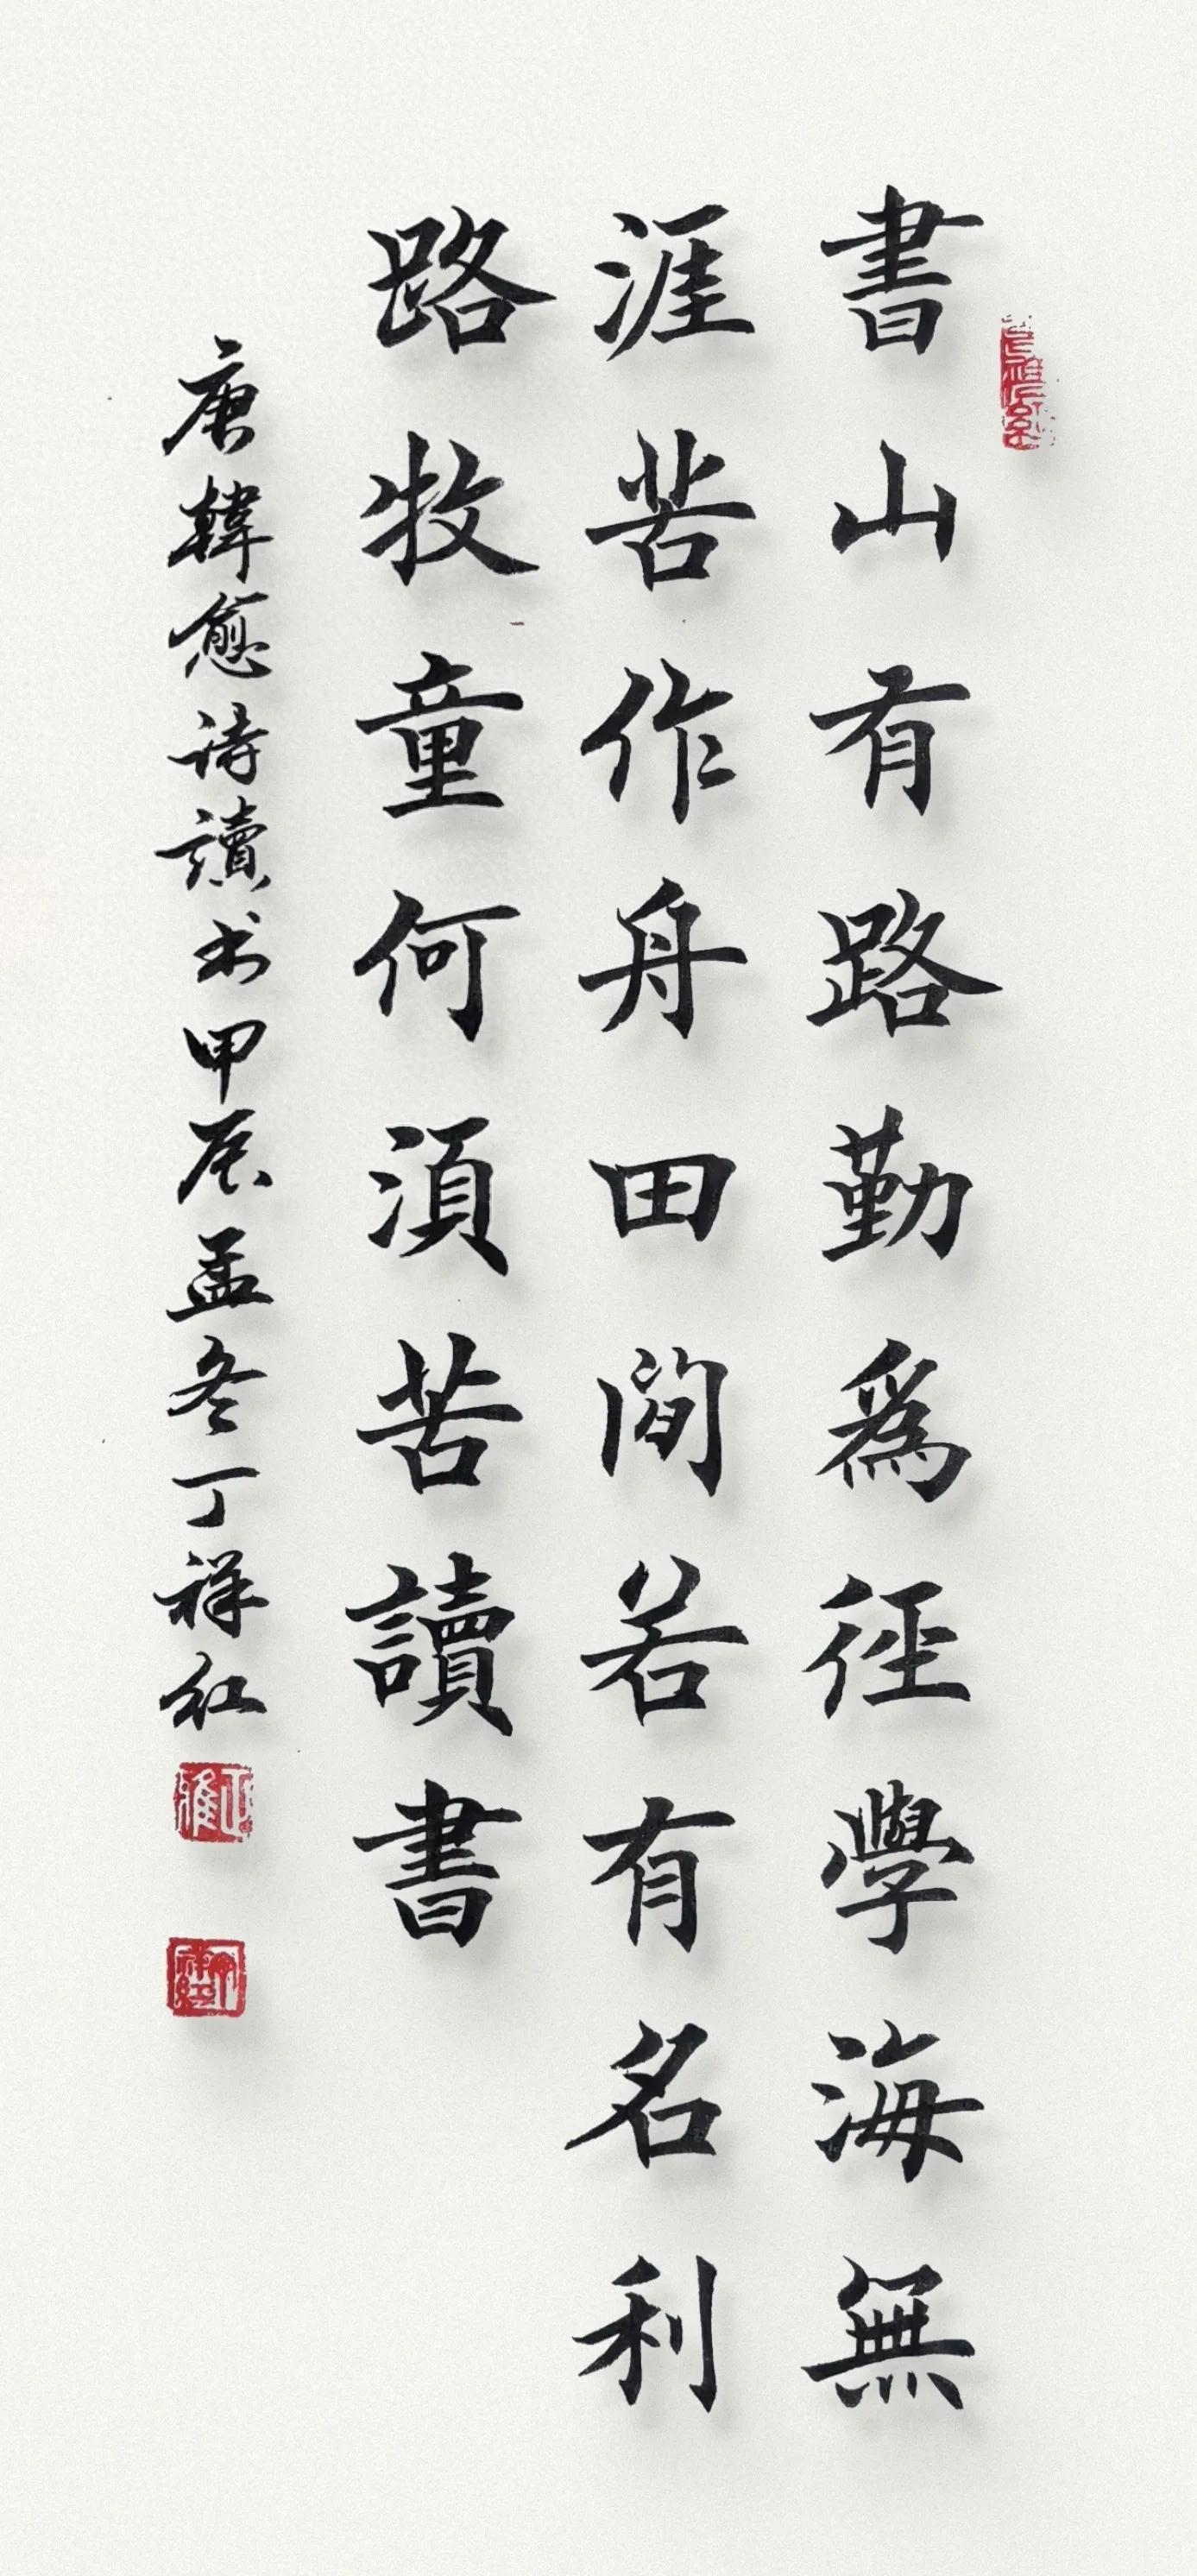 書山有路勤為徑學海無
涯苦作舟田間若有名利
路牧童何須苦讀書
唐韓愈诗讀书甲辰孟冬丁祥红